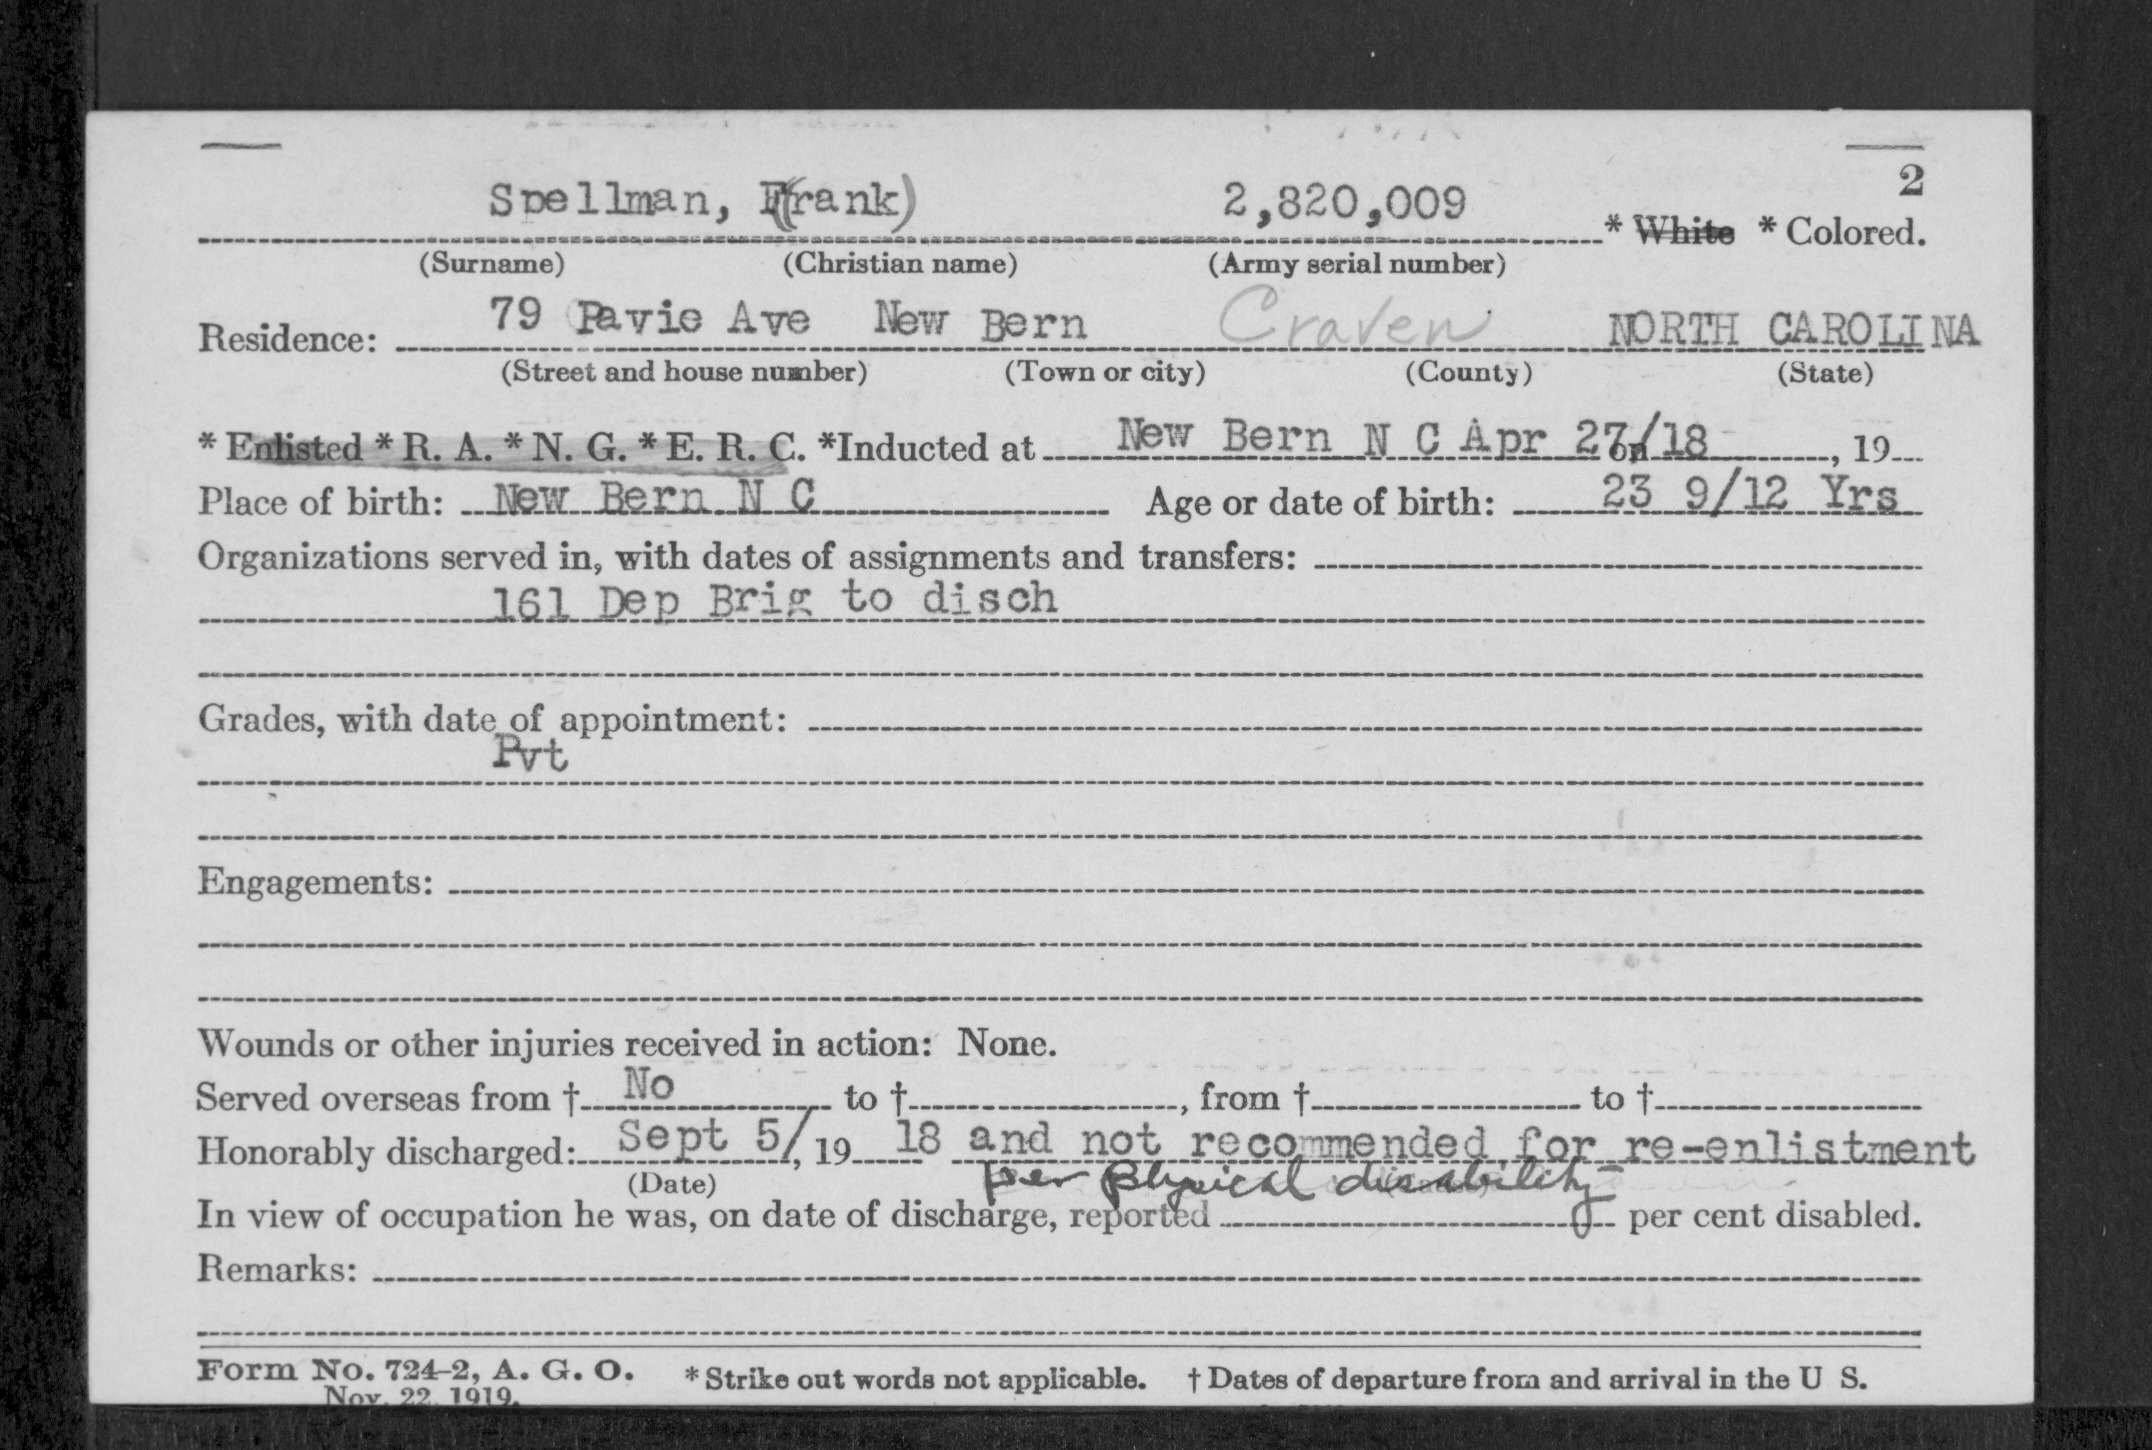 2
Spellman, F(rank) 2,820,009 * White * Colored.
(Surname) (Christian name) (Army serial number)
79 Pavie Ave New Bern Craven NORTH CAROLINA
Residence:
(Street and house number) (Town or city) (County) (State)
* Enlisted * R. A. * N. G. * E. R. C. *Inducted at New Bern N C Apr 27/18 on , 19
Place of birth: New Bern N C Age or date of birth: 23 9/12 Yrs
Organizations served in, with dates of assignments and transfers:
161 Dep Brig to disch
Grades, with date of appointment:
Pvt
Engagements:
Wounds or other injuries received in action: None.
Served overseas from † No to † , from † to †
Honorably discharged: Sept 5/, 19 18 and not recommended for re-enlistment
(Date) per physical disability
In view of occupation he was, on date of discharge, reported per cent disabled.
Remarks:
Form No. 724-2, A. G. O. * Strike out words not applicable. † Dates of departure from and arrival in the U S.
Nov. 22, 1919.